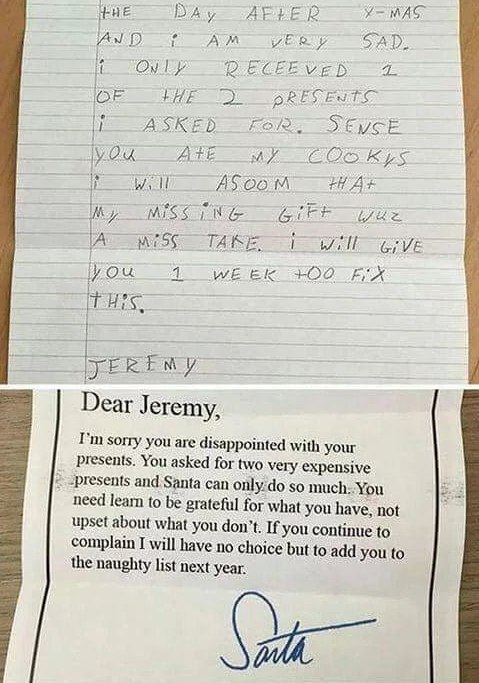 THE DAY AFTER X-MAS
AND i AM VERY SAD.
i ONLY RECEEVED 1
OF tHE 2 PRESENTS
i ASKED FOR. SENSE
YOU AtE MY COOKYS
i Will ASOOM tHAt
My MISSiNG GiFt WUZ
A MiSS TAKE. i Will GiVE
YOU 1 WEEK tOO FiX
tHiS.
JEREMY
Dear Jeremy,
I'm sorry you are disappointed with your
presents. You asked for two very expensive
presents and Santa can only do so much. You
need learn to be grateful for what you have, not
upset about what you don't. If you continue to
complain I will have no choice but to add you to
the naughty list next year.
Santa